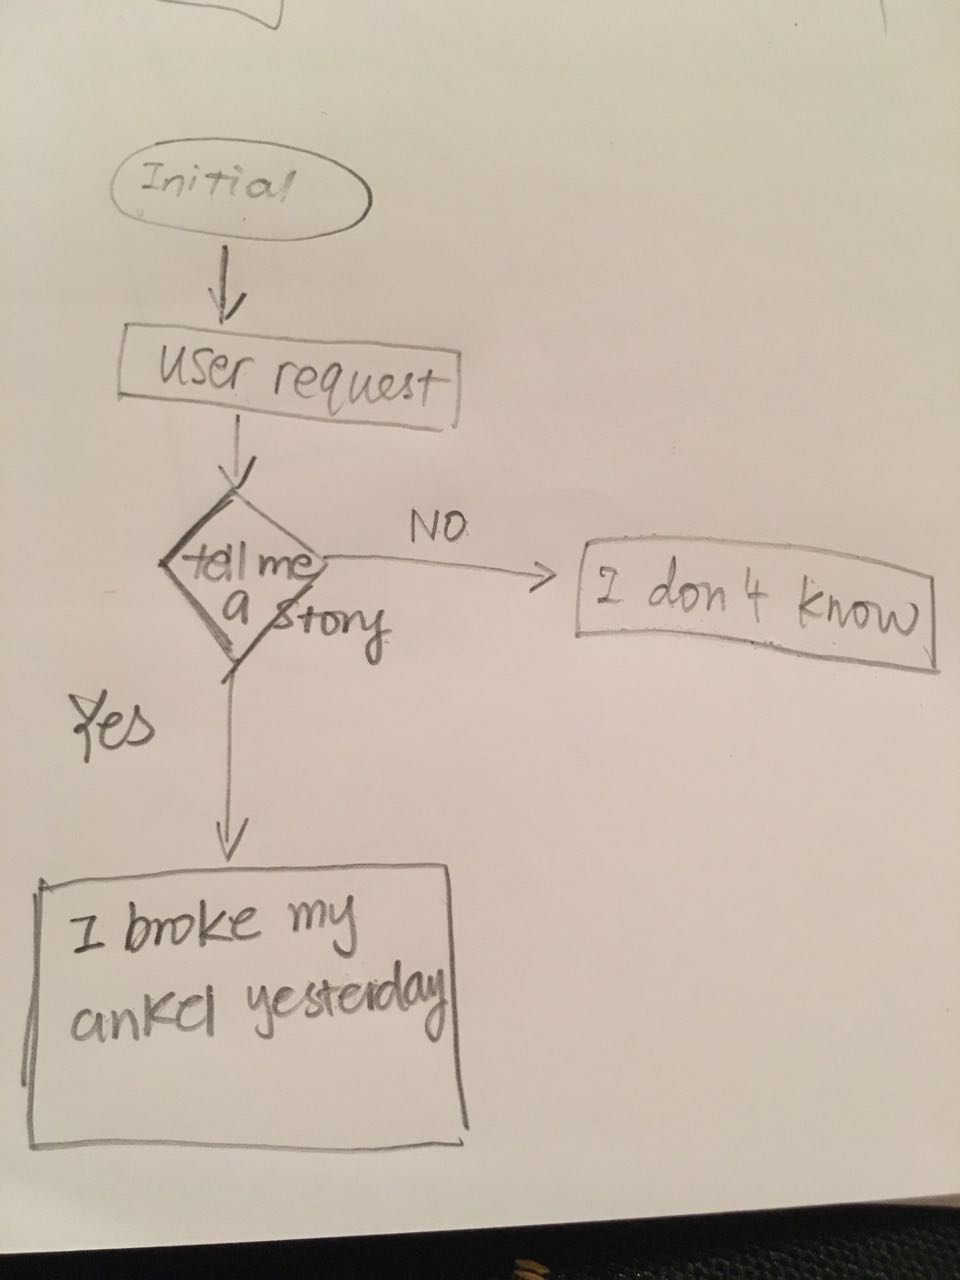 Initial
user request
tell me
a story
NO
I don't know
Yes
I broke my
ankel yesterday